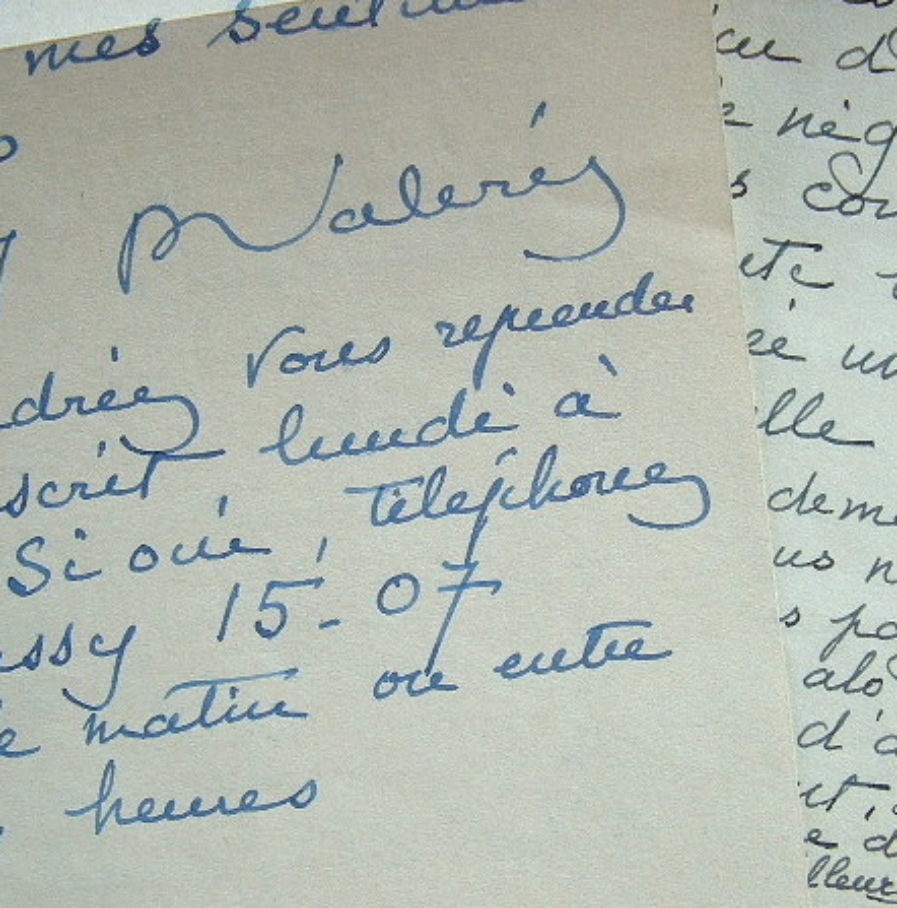 mes sentim
P Valéry
drez vous reprendre
scrit lundi à
Si oui, téléphonez
ssy 15-07
matin ou entre
heures
u d
nég
cou
etc
ré un
lle
dem
us n
s pa
alo
d'a
t,
e d
lleurs